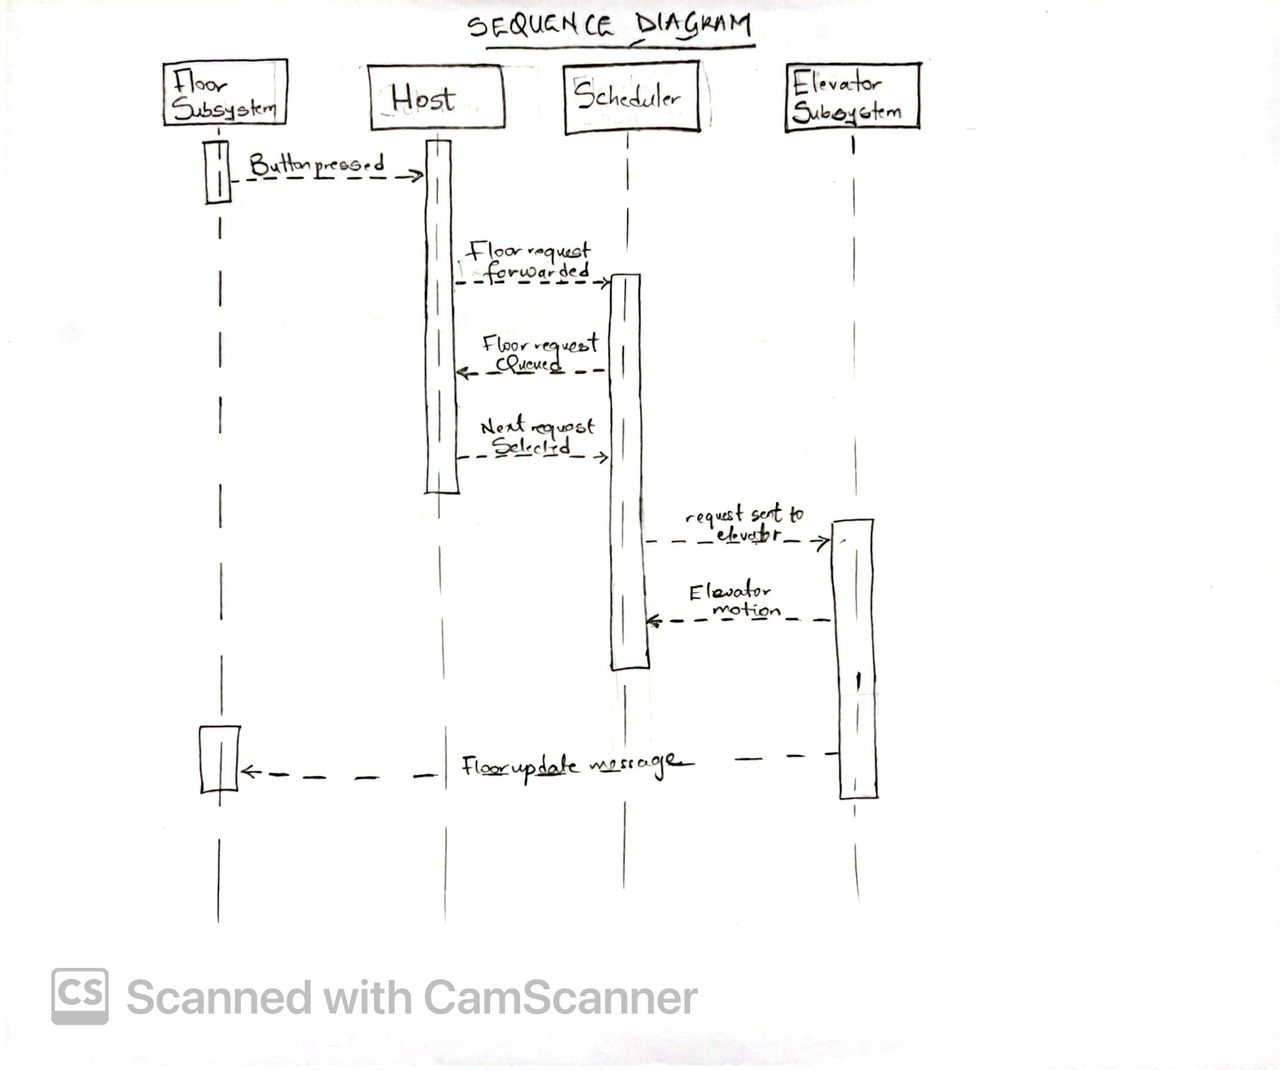 SEQUENCE DIAGRAM
Floor
Subsystem
Host
Scheduler
Elevator
Subsystem
Button pressed
Floor request
forwarded
Floor request
Queued
Next request
Selected
request sent to
elevator
Elevator
motion
Floor update message
CS Scanned with CamScanner